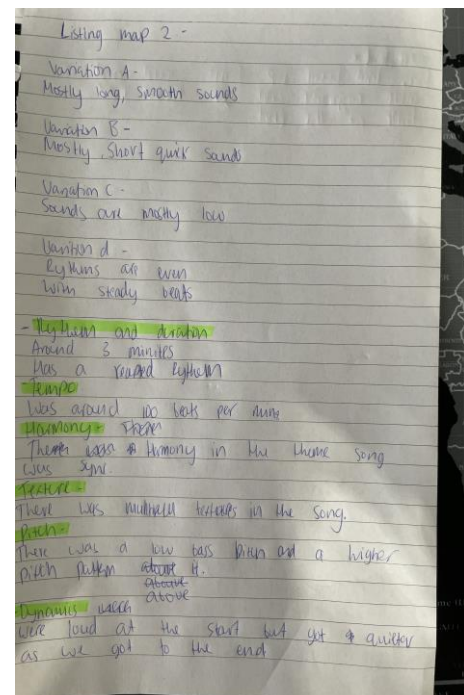 Listing map 2 -
Variation A -
Mostly long, smooth sounds
Variation B -
Mostly short quick sounds
Variation C -
Sounds are mostly low
Varition d -
Rythms are even
with steady beats
- Rythem and duration
Around 3 minites
Has a rythem
Tempo
Was around 100 beats per mine
Harmony -
harmony in the theme song
was sync.
Texture -
There was textures in the song.
Pitch -
There was a low bass pitch and a higher
pitch pattern above it.
above
above
Dynamics
were loud at the start but got quieter
as we got to the end